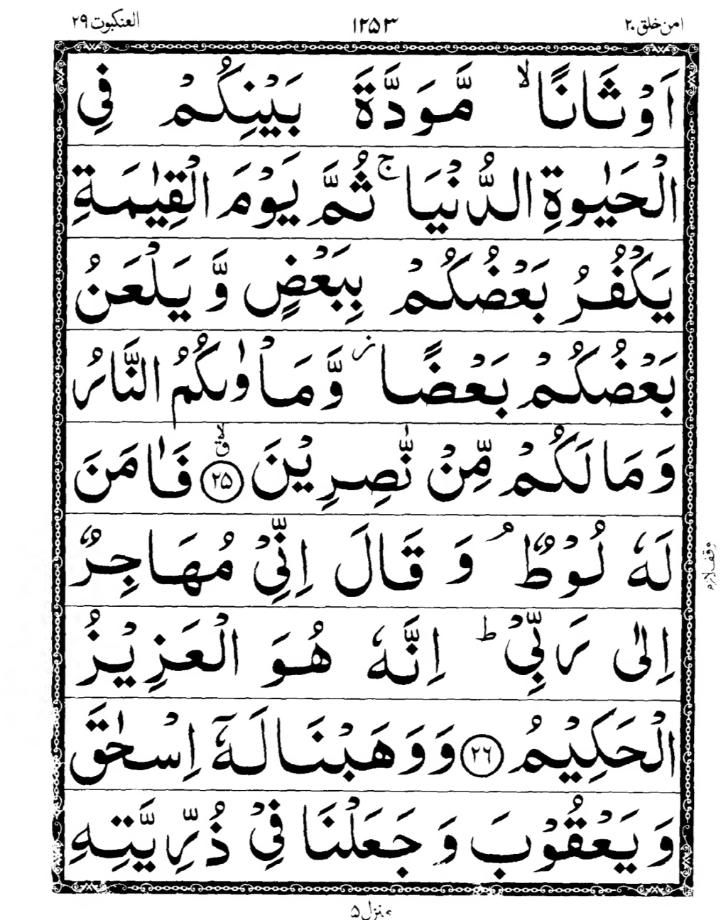 امن خلق ۲۰ ۱۲۵۳ العنکبوت ۲۹
اَوْثَانًا ۙ مَّوَدَّةَ بَیْنِكُمْ فِی
الْحَیٰوةِ الدُّنْیَا ۚ ثُمَّ یَوْمَ الْقِیٰمَةِ
یَكْفُرُ بَعْضُكُمْ بِبَعْضٍ وَّ یَلْعَنُ
بَعْضُكُمْ بَعْضًا ز وَّ مَاْوٰىكُمُ النَّارُ
وَ مَا لَكُمْ مِّنْ نّٰصِرِیْنَ ۟ۙق ﴿۲۵﴾ فَاٰمَنَ
لَهٗ لُوْطٌ ۘ وَ قَالَ اِنِّیْ مُهَاجِرٌ
وقف لازم
اِلٰی رَبِّیْ ؕ اِنَّهٗ هُوَ الْعَزِیْزُ
الْحَكِیْمُ ﴿۲۶﴾ وَ وَهَبْنَا لَهٗۤ اِسْحٰقَ
وَ یَعْقُوْبَ وَ جَعَلْنَا فِیْ ذُرِّیَّتِهِ
منزل ۵